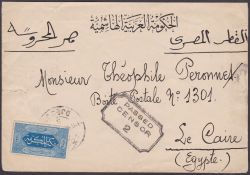 الحكومة العربية الهاشمية
القطر المصري
مصر المحروسة
Monsieur Théophile Peronnet
Boite Postale N° 1301.
PASSED
CENSOR
2
Le Caire
(Egypte).